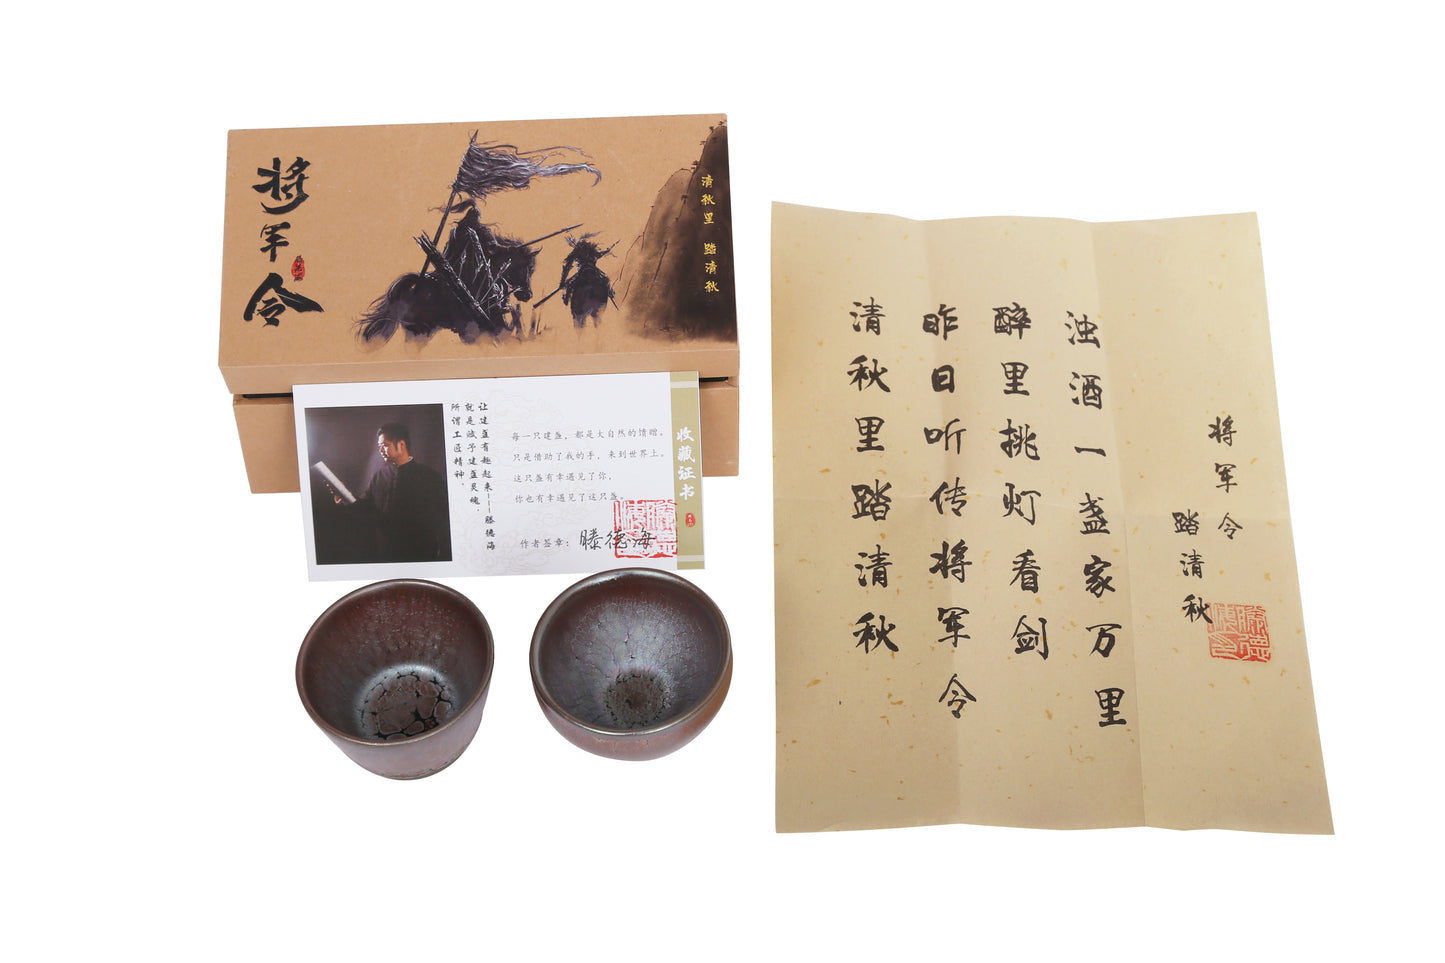 将军令
清秋里 踏清秋
收藏证书
让建盏有趣起来——滕德海
就是赋予建盏灵魂，
所谓工匠精神，
每一只建盏，都是大自然的馈赠。
只是借助了我的手，来到世界上。
这只盏有幸遇见了你，
你也有幸遇见了这只盏。
作者签章：滕德海
将军令
踏清秋
浊酒一盏家万里
醉里挑灯看剑
昨日听传将军令
清秋里踏清秋